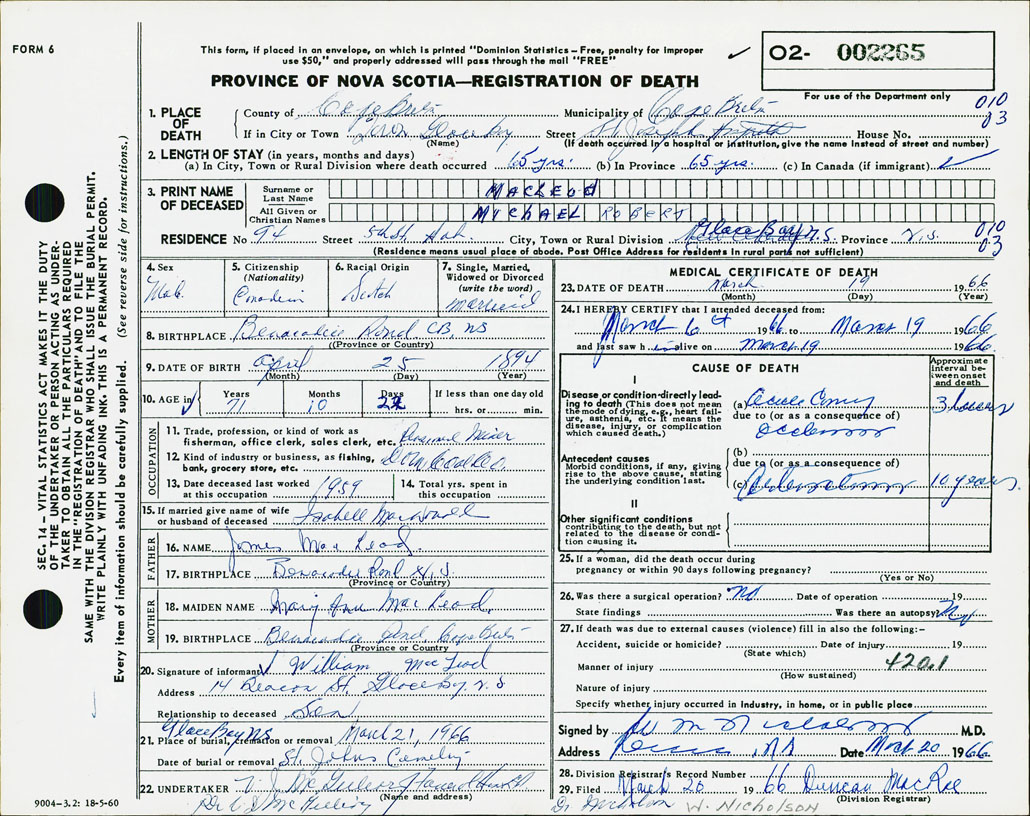 FORM 6
This form, if placed in an envelope, on which is printed "Dominion Statistics – Free, penalty for improper
use $50," and properly addressed will pass through the mail "FREE"
✓ O2- 002265
For use of the Department only
PROVINCE OF NOVA SCOTIA—REGISTRATION OF DEATH
010
03
1. PLACE OF DEATH
County of Cape Breton Municipality of Cape Breton
If in City or Town Town Glace Bay Street St. Joseph House No.
(Name) (If death occurred in a hospital or institution, give the name instead of street and number)
2. LENGTH OF STAY (in years, months and days)
(a) In City, Town or Rural Division where death occurred 65 yrs. (b) In Province 65 yrs. (c) In Canada (if immigrant)
3. PRINT NAME OF DECEASED
Surname or Last Name MACLEOD
All Given or Christian Names MICHAEL ROBERT
RESIDENCE No 94 Street 5th St. City, Town or Rural Division Glace Bay N.S. Province N.S. 010
03
(Residence means usual place of abode. Post Office Address for residents in rural parts not sufficient)
4. Sex Male
5. Citizenship (Nationality) Canadian
6. Racial Origin Scotch
7. Single, Married, Widowed or Divorced (write the word) Married
8. BIRTHPLACE Benacadie Pond CB, NS
(Province or Country)
9. DATE OF BIRTH April 25 1894
(Month) (Day) (Year)
10. AGE in Years 71 Months 10 Days 22 If less than one day old hrs. or min.
OCCUPATION
11. Trade, profession, or kind of work as fisherman, office clerk, sales clerk, etc. Pensioned Miner
12. Kind of industry or business, as fishing, bank, grocery store, etc. Dom Coal Co.
13. Date deceased last worked at this occupation 1959
14. Total yrs. spent in this occupation
15. If married give name of wife or husband of deceased Isabell MacDonald
FATHER
16. NAME James MacLeod
17. BIRTHPLACE Benacadie Pond N.S.
(Province or Country)
MOTHER
18. MAIDEN NAME Mary Ann MacLeod
19. BIRTHPLACE Benacadie Pond Cape Breton
(Province or Country
20. Signature of informant William MacLeod
Address 14 Beacon St. Glace Bay N.S
Relationship to deceased Son
21. Place of burial, cremation or removal Glace Bay NS March 21, 1966
Date of burial or removal St. Johns Cemetery
22. UNDERTAKER
(Name and address)
9004–3.2: 18-5-60
MEDICAL CERTIFICATE OF DEATH
23. DATE OF DEATH March 19 1966
(Month) (Day) (Year)
24. I HEREBY CERTIFY that I attended deceased from:
March 6 1966 to March 19 1966
and last saw him alive on March 19 1966
CAUSE OF DEATH
Approximate interval between onset and death
I
Disease or condition directly leading to death (This does not mean the mode of dying, e.g., heart failure, asthenia, etc. It means the disease, injury, or complication which caused death.)
(a) Acute Coronary 3 hours
due to (or as a consequence of)
Occlusion
Antecedent causes
Morbid conditions, if any, giving rise to the above cause, stating the underlying condition last.
(b)
due to (or as a consequence of)
(c) 10 years
II
Other significant conditions
contributing to the death, but not related to the disease or condition causing it.
25. If a woman, did the death occur during
pregnancy or within 90 days following pregnancy?
(Yes or No)
26. Was there a surgical operation? No Date of operation 19
State findings Was there an autopsy No
27. If death was due to external causes (violence) fill in also the following:–
Accident, suicide or homicide? Date of injury 19
(State which)
420.1
Manner of injury
(How sustained)
Nature of injury
Specify whether injury occurred in industry, in home, or in public place
Signed by M.D.
Address , NS Date March 20 1966
28. Division Registrar's Record Number
29. Filed March 20 1966 Duncan MacRae
(Division Registrar)
Dr. Nicholson W. NICHOLSON
SEC. 14 – VITAL STATISTICS ACT MAKES IT THE DUTY
OF THE UNDERTAKER OR PERSON ACTING AS UNDER-
TAKER TO OBTAIN ALL THE PARTICULARS REQUIRED
IN THE "REGISTRATION OF DEATH" AND TO FILE THE
SAME WITH THE DIVISION REGISTRAR WHO SHALL ISSUE THE BURIAL PERMIT.
WRITE PLAINLY WITH UNFADING INK. THIS IS A PERMANENT RECORD.
Every item of information should be carefully supplied. (See reverse side for instructions.)